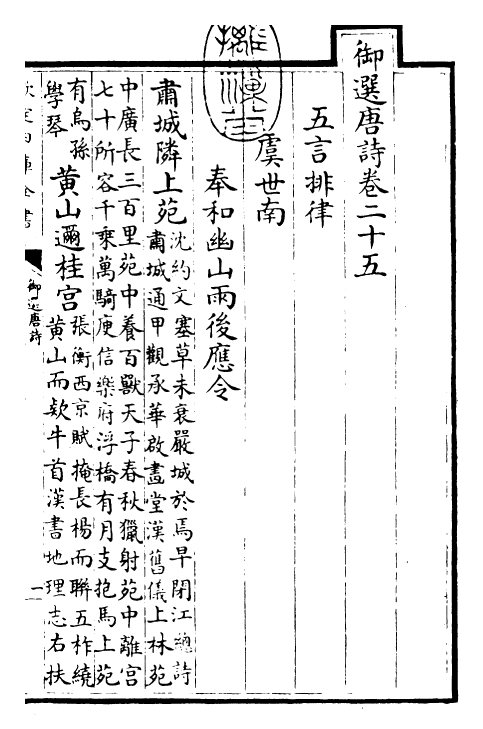 御選唐詩卷二十五
五言排律
虞世南
奉和幽山雨後應令
肅城隣上苑
沈約文塞草未衰嚴城於焉早閉江總詩
肅城通甲觀承華啟畫堂漢舊儀上林苑
中廣長三百里苑中養百獸天子春秋獵射苑中離宮
七十所容千乘萬騎庾信樂府浮橋有月支抱馬上苑
有烏孫
學琴
黄山邇桂宮
張衡西京賦掩長楊而聯五柞繞
黄山而欵牛首漢書地理志右扶
欽定四庫全書
御選唐詩
一